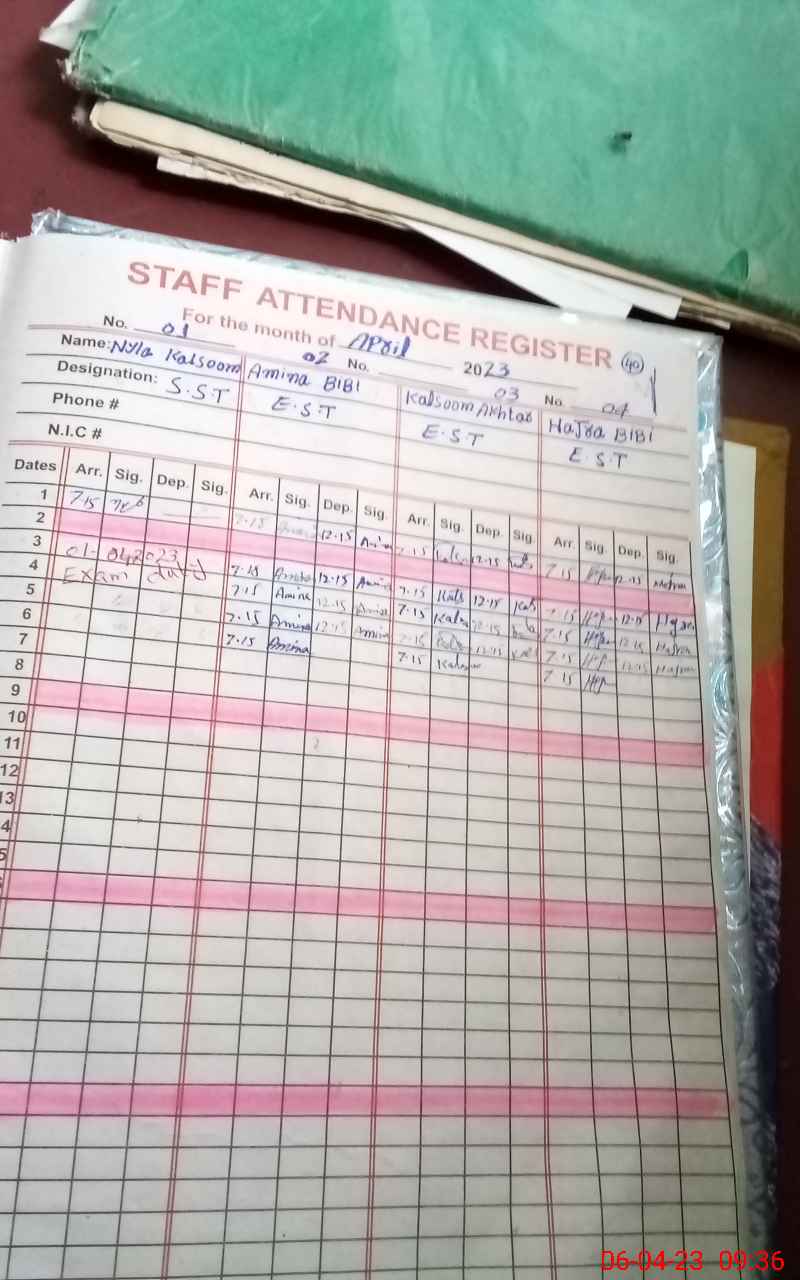 STAFF ATTENDANCE REGISTER 40
For the month of April 2023
No. 01 02 No. 03 No. 04
Name: Nyla Kalsoom Amina BIBI Kalsoom Akhtar Hajra BIBI
Designation: S.S.T E.S.T E.S.T E.S.T
Phone #
N.I.C #
Dates Arr. Sig. Dep. Sig. Arr. Sig. Dep. Sig. Arr. Sig. Dep. Sig. Arr. Sig. Dep. Sig.
1 7.15 7.15 12.15 7.15 12.15 7.15 12.15
2
3 01-04-2023 7.15 12.15 Amina 7.15 Kals 12.15 Kals 7.15 12.15
4 Exam duty 7.15 Amina 12.15 Amina 7.15 12.15 7.15 12.15 Hajra
5 7.15 Amina 12.15 Amina 7.15 12.15 7.15 12.15 Hajra
6 7.15 Amina 7.15 7.15
7
8
9
10
11
12
13
4
5
06-04-23 09:36